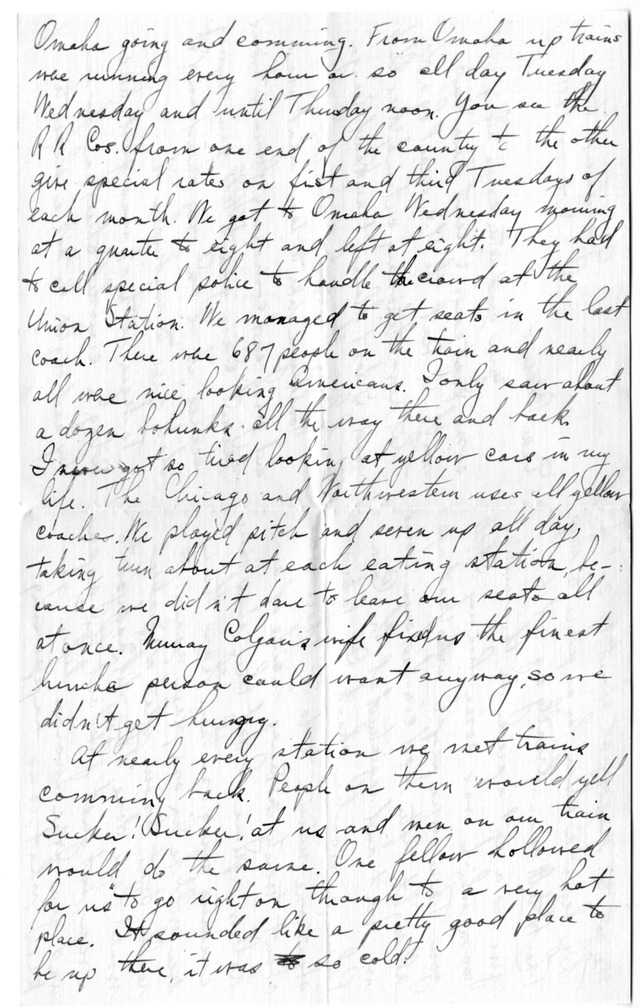 Omaha going and comming. From Omaha up trains
were running every hour or so all day Tuesday
Wednesday and until Thursday noon. You see the
R R Cos. from one end of the country to the other
give special rates on first and third Tuesdays of
each month. We got to Omaha Wednesday morning
at a quarter to eight and left at eight. They had
to call special police to handle the crowd at the
Union Station. We managed to get seats in the last
coach. There were 687 people on the train and nearly
all were nice looking Americans. I only saw about
a dozen bohunks all the way there and back.
I never got so tired looking at yellow cars in my
life. The Chicago and Northwestern uses all yellow
coaches. We played pitch and seven up all day,
taking turn about at each eating station, be-
cause we didn't dare to leave our seats all
at once. Murray Colgan's wife fixed us the finest
lunch a person could want anyway, so we
didn't get hungry.
At nearly every station we met trains
comming back. People on them would yell
Sucker! Sucker! at us and men on our train
would do the same. One fellow hollowed
for us to go right on through to a very hot
place. It sounded like a pretty good place to
be up there, it was so cold.